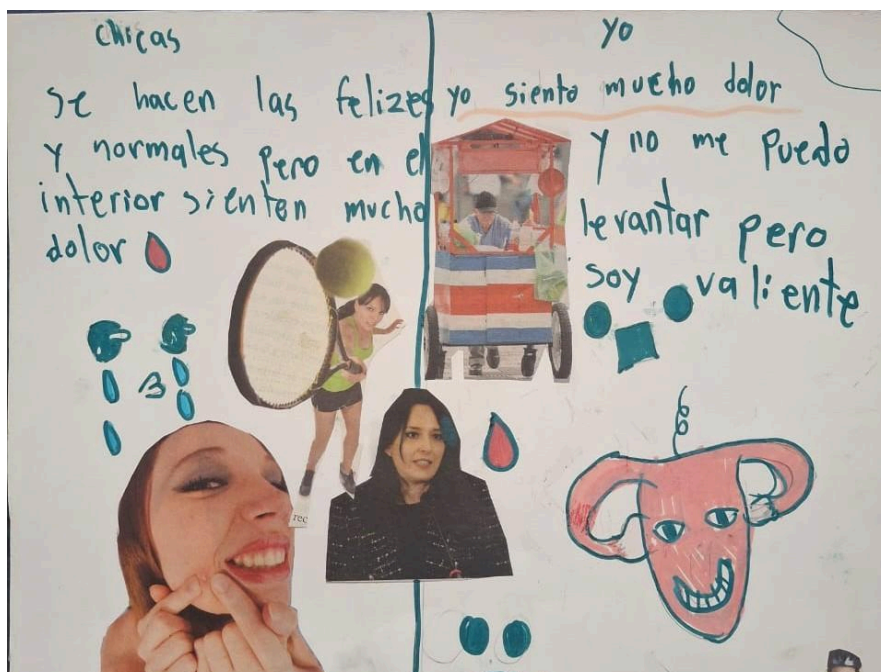 chicas
se hacen las felizes
y normales pero en el
interior sienten mucho
dolor
yo
yo siento mucho dolor
y no me puedo
levantar pero
soy valiente
rec